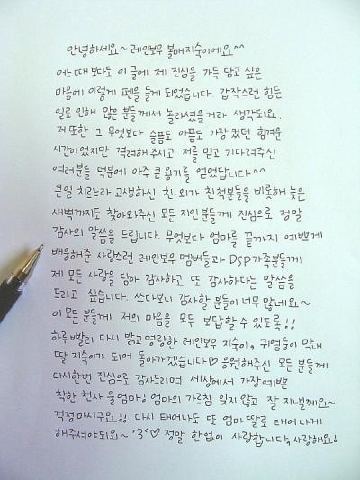 안녕하세요~ 레인보우 볼매지숙이에요^^
어느때 보다도 이 글에 제 진심을 가득 담고 싶은
마음에 이렇게 펜을 들게 되었습니다. 갑작스런 힘든
일로 인해 많은 분들께서 놀라셨을거라 생각되요.
저 또한 그 무엇보다 슬픔도 아픔도 가장 컸던 힘겨운
시간이었지만 격려해주시고 저를 믿고 기다려주신
여러분들 덕분에 아주 큰 용기를 얻었답니다^^
큰일 치르느라 고생하신 친.외가 친척분들을 비롯해 늦은
새벽까지도 찾아와주신 모든 지인분들께 진심으로 정말
감사의 말씀을 드립니다. 무엇보다 엄마를 끝까지 예쁘게
배웅해준 사랑스런 레인보우 멤버들과 DSP가족분들께
제 모든 사랑을 담아 감사하고 또 감사하다는 말씀을
드리고 싶습니다. 쓰다보니 감사할 분들이 너무 많네요~
이 모든 분들께 저의 마음을 모두 보답할 수 있도록!!
하루빨리 다시 밝고 명랑한 레인보우 지숙이, 귀염둥이 막내
딸 지숙이가 되어 돌아가겠습니다♡ 응원해주신 모든 분들께
다시한번 진심으로 감사드리며 세상에서 가장 예쁜
착한 천사 울엄마! 엄마의 가르침 잊지않고 잘 지낼께요~
걱정마시구요!! 다시 태어나도 또 엄마 딸로 태어나게
해주셔야되요~ '3'♡ 정말 한없이 사랑합니다, 사랑해요!